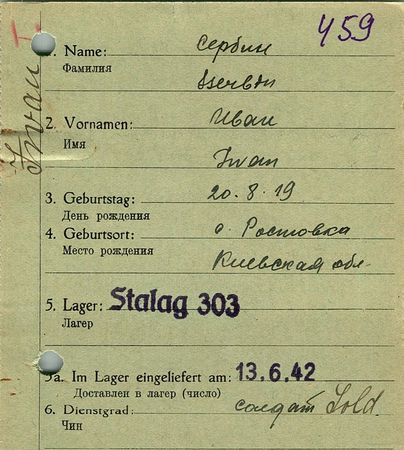 459
1. Name: Сербин
Фамилия
Sserbin
2. Vornamen: Иван
Имя
Iwan
3. Geburtstag: 20.8.19
День рождения
4. Geburtsort: с. Ростовка
Место рождения
Киевская обл.
5. Lager: Stalag 303
Лагер
5a. Im Lager eingeliefert am: 13.6.42
Доставлен в лагер (число)
6. Dienstgrad: солдат Sold.
Чин
Iwan